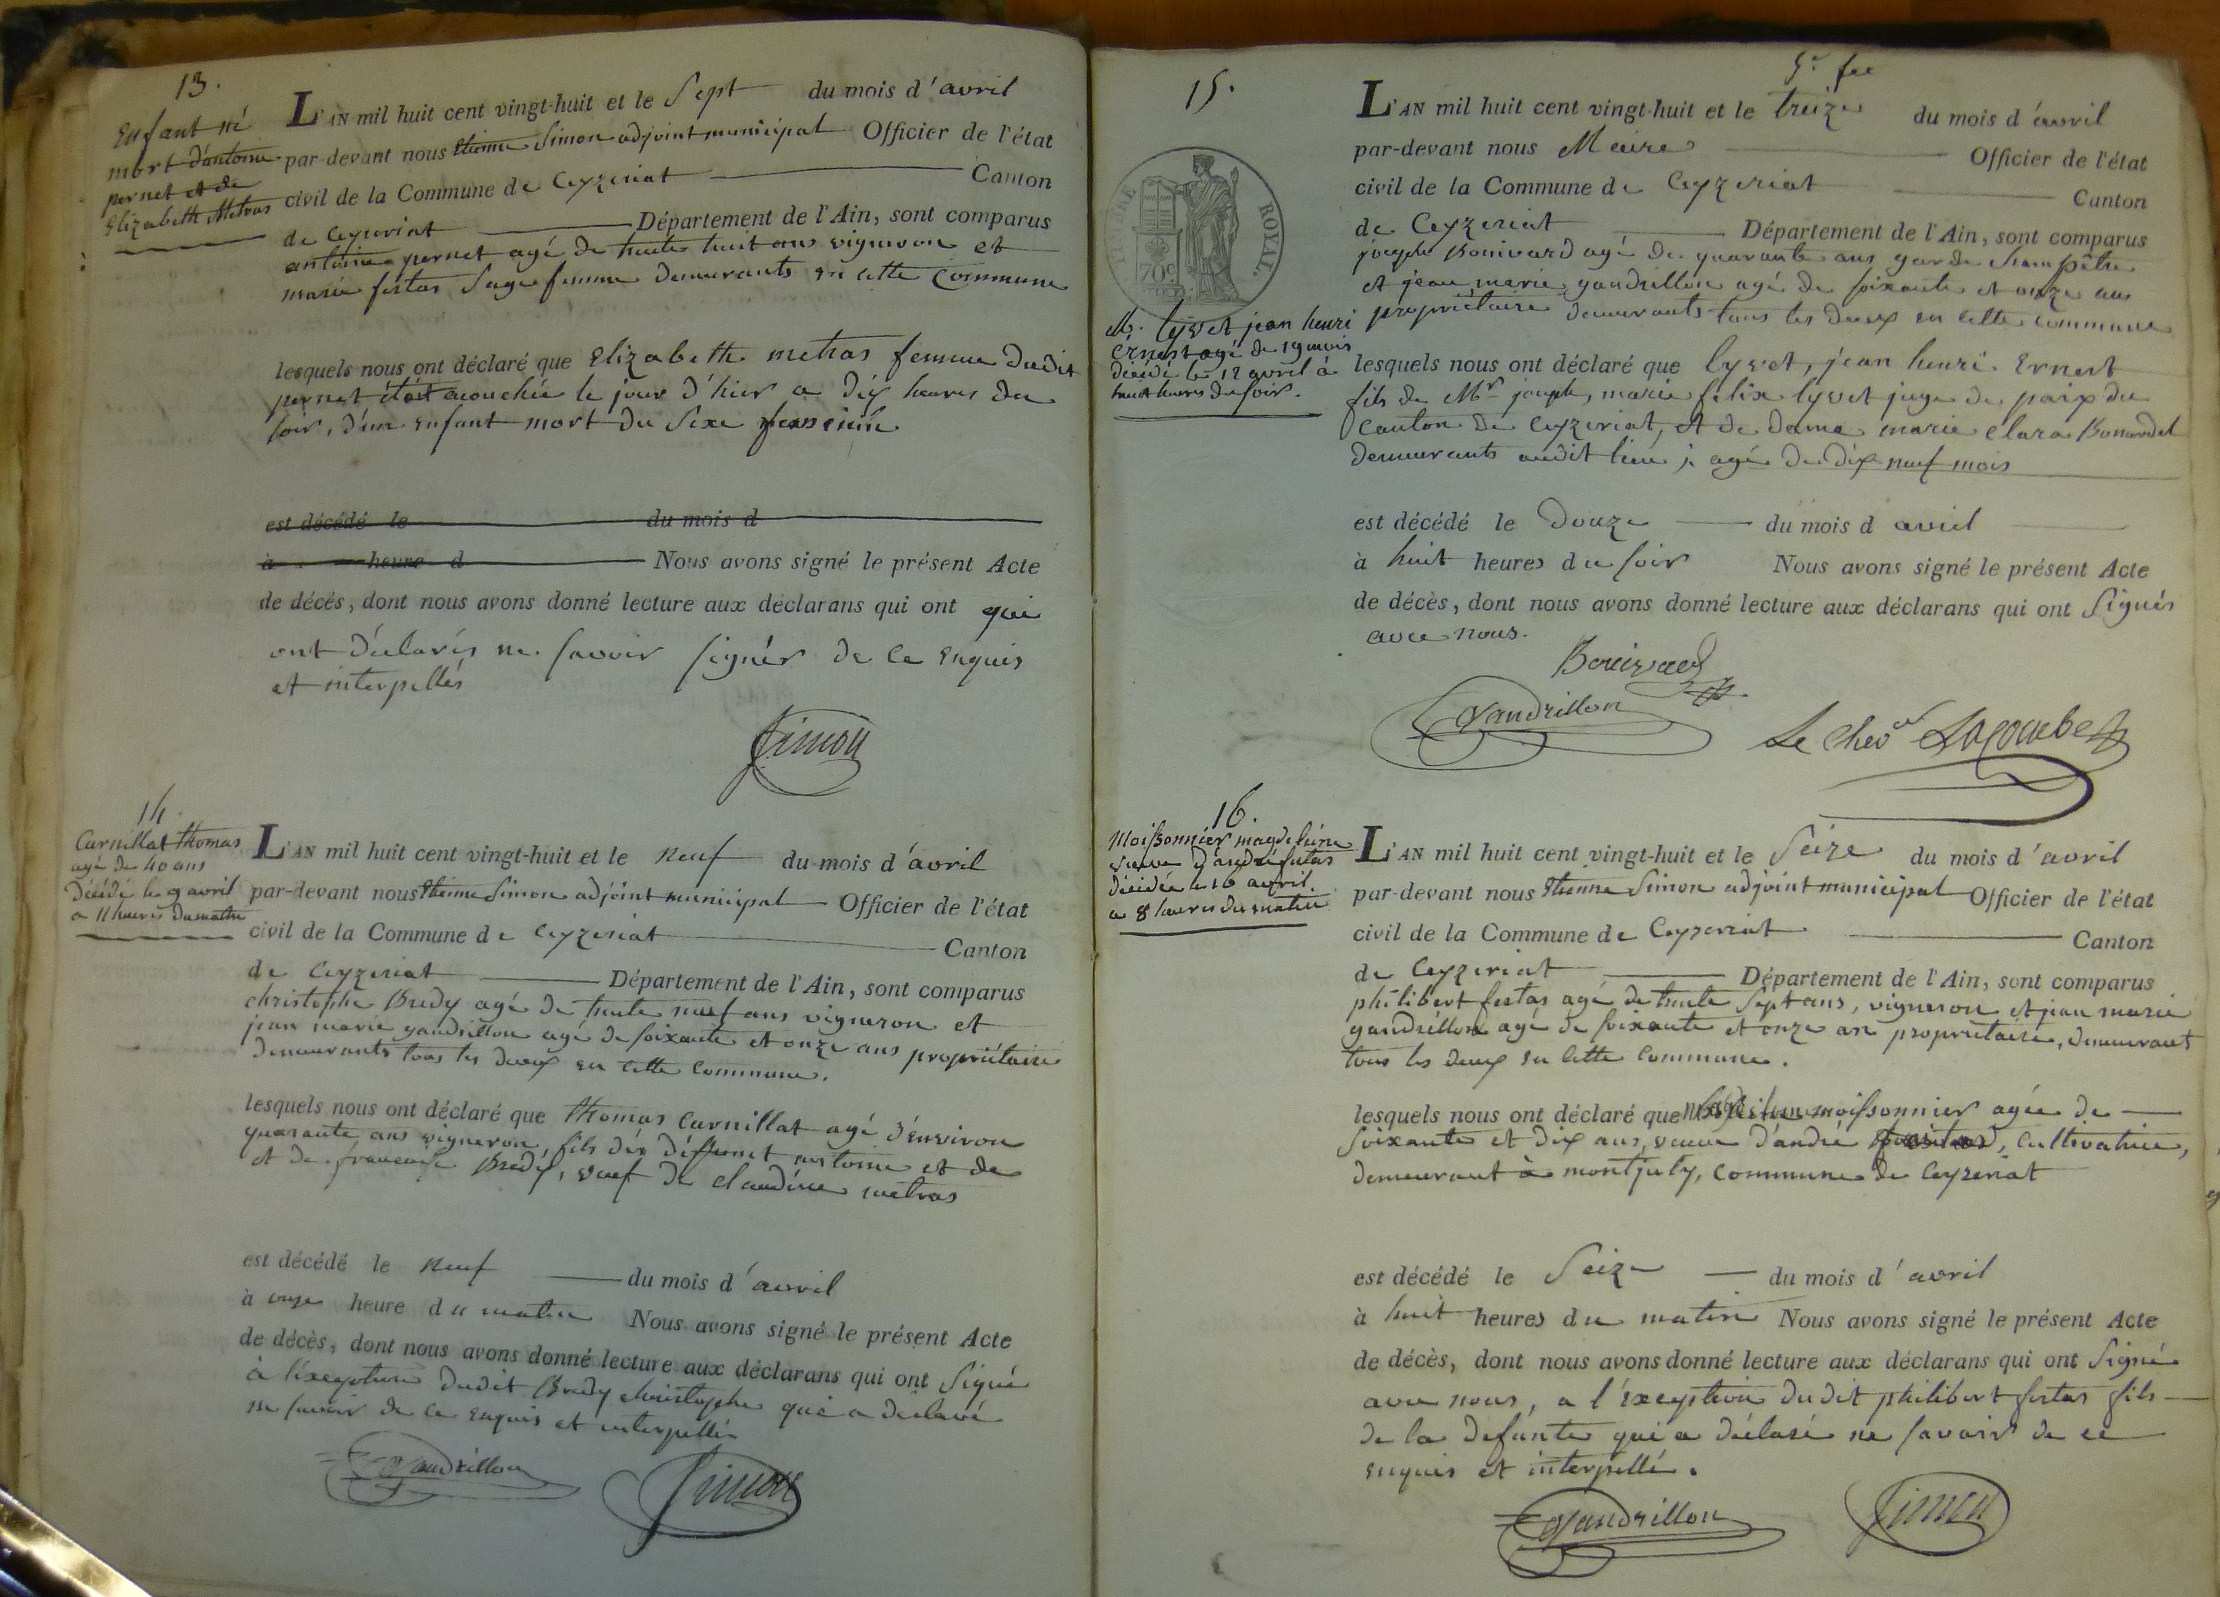 13.
Enfant né
mort d'antoine
pernet et de
Elizabeth Metras
L'AN mil huit cent vingt-huit et le Sept du mois d'avril
par-devant nous Etienne Simon adjoint municipal Officier de l'état
civil de la Commune de Ceyzeriat Canton
de Ceyzeriat Département de l'Ain, sont comparus
antoine pernet agé de trente huit ans vigneron et
marie festas sage femme demeurants en cette Commune
lesquels nous ont déclaré que Elizabeth metras femme dudit
pernet était acouchée le jour d'hier a dix heures du
soir, d'un enfant mort du sexe feminin
est décédé le du mois d
à heure d Nous avons signé le présent Acte
de décès, dont nous avons donné lecture aux déclarans qui ont qui
ont déclarés ne savoir signér de ce enquis
et interpellés
Simon
14.
Carnillat thomas
agé de 40 ans
Décédé le 9 avril
a 11 heures du matin
L'AN mil huit cent vingt-huit et le neuf du mois d'avril
par-devant nous Etienne Simon adjoint municipal Officier de l'état
civil de la Commune de Ceyzeriat Canton
de Ceyzeriat Département de l'Ain, sont comparus
christophe Bredy agé de trente neuf ans vigneron et
jean marie gandrillon agé de soixante et onze ans propriétaire
demeurants tous les deux en cette commune.
lesquels nous ont déclaré que thomas Carnillat agé d'environ
quarante ans vigneron, fils de déffunct antoine et de
et de françoise Bredy, veuf de claudine metras
est décédé le neuf du mois d'avril
à onze heure du matin Nous avons signé le présent Acte
de décès, dont nous avons donné lecture aux déclarans qui ont Signé
à l'éxception dudit Bredy christophe qui a déclaré
ne savoir de ce enquis et interpellé
Gandrillon
Simon
5.e fee
15.
TIMBRE ROYAL
70c
M. lyvet jean henri
Ernest agé de 19 mois
décédé le 12 avril à
huit heures du soir.
L'AN mil huit cent vingt-huit et le treize du mois d'avril
par-devant nous Maire Officier de l'état
civil de la Commune de Ceyzeriat Canton
de Ceyzeriat Département de l'Ain, sont comparus
joseph Bonivard agé de quarante ans garde champêtre
et jean marie gandrillon agé de soixante et onze ans
propriétaire demeurants tous les deux en cette commune
lesquels nous ont déclaré que lyvet, jean henri Ernest
fils de Mr joseph, marie felix lyvet juge de paix du
Canton de Ceyzeriat, et de dame marie clara Bonardel
demeurants audit lieu ; agé de dix neuf mois
est décédé le Douze du mois d avril
à huit heures du soir Nous avons signé le présent Acte
de décès, dont nous avons donné lecture aux déclarans qui ont Signés
avec nous.
Gandrillon
Le Chevr Lacombe
16.
Moissonnier magdeleine
veuve d'andré festas
décédée le 16 avril
a 8 heures du matin
L'AN mil huit cent vingt-huit et le Seize du mois d'avril
par-devant nous Etienne Simon adjoint municipal Officier de l'état
civil de la Commune de Ceyzeriat Canton
de Ceyzeriat Département de l'Ain, sont comparus
philibert festas agé de trente sept ans, vigneron et jean marie
gandrillon agé de soixante et onze an propriétaire, demeurant
tous les deux en cette commune.
lesquels nous ont déclaré que moissonnier agée de
soixante et dix ans, veuve d'andré festas, cultivatrice,
demeurant à montjuly, commune de Ceyzeriat
est décédé le Seize du mois d'avril
à huit heures du matin Nous avons signé le présent Acte
de décès, dont nous avons donné lecture aux déclarans qui ont Signé
avec nous, a l'éxception dudit philibert festas fils
de la défunte qui a déclaré ne savoir de ce
enquis et interpellé.
Gandrillon
Simon